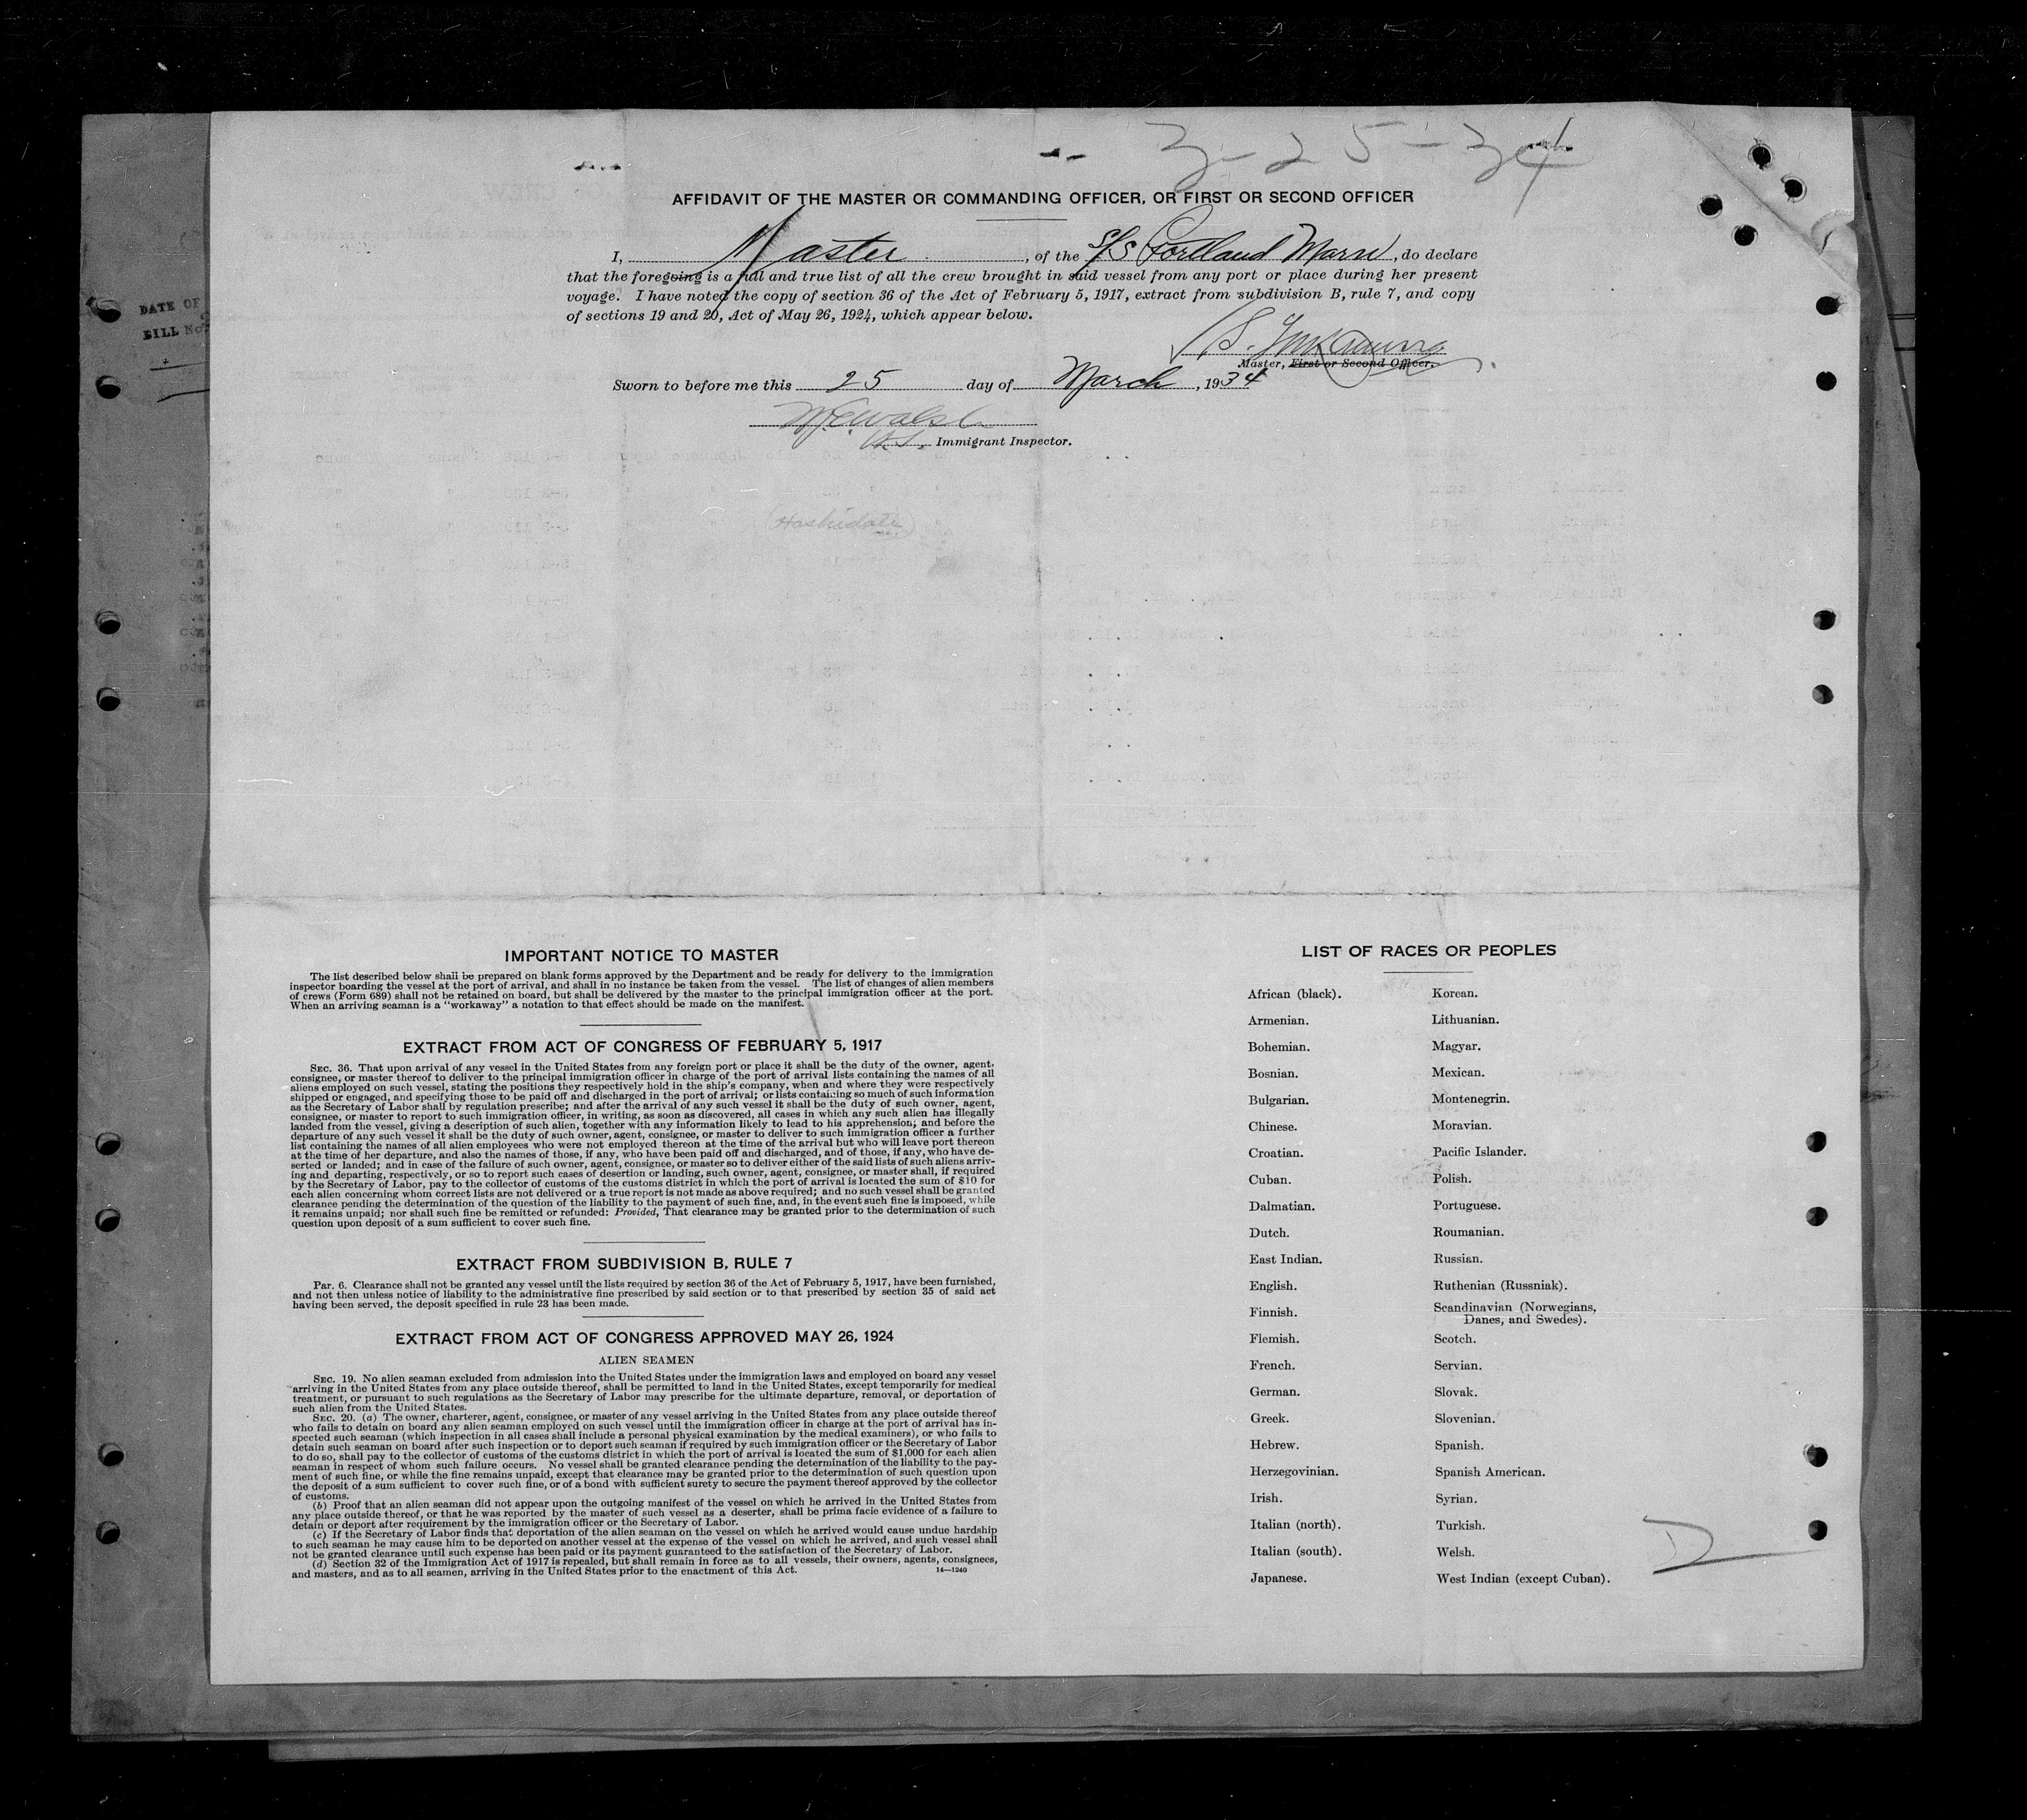 3-25-34
AFFIDAVIT OF THE MASTER OR COMMANDING OFFICER, OR FIRST OR SECOND OFFICER
I, Master, of the S/S Portland Maru, do declare
that the foregoing is a full and true list of all the crew brought in said vessel from any port or place during her present
voyage. I have noted the copy of section 36 of the Act of February 5, 1917, extract from subdivision B, rule 7, and copy
of sections 19 and 20, Act of May 26, 1924, which appear below.
S.
Master, First or Second Officer.
Sworn to before me this 25 day of March, 1934
Walsh
Immigrant Inspector.
(Hashidate)
DATE OF
BILL No.
IMPORTANT NOTICE TO MASTER
The list described below shall be prepared on blank forms approved by the Department and be ready for delivery to the immigration
inspector boarding the vessel at the port of arrival, and shall in no instance be taken from the vessel. The list of changes of alien members
of crews (Form 689) shall not be retained on board, but shall be delivered by the master to the principal immigration officer at the port.
When an arriving seaman is a "workaway" a notation to that effect should be made on the manifest.
EXTRACT FROM ACT OF CONGRESS OF FEBRUARY 5, 1917
SEC. 36. That upon arrival of any vessel in the United States from any foreign port or place it shall be the duty of the owner, agent,
consignee, or master thereof to deliver to the principal immigration officer in charge of the port of arrival lists containing the names of all
aliens employed on such vessel, stating the positions they respectively hold in the ship's company, when and where they were respectively
shipped or engaged, and specifying those to be paid off and discharged in the port of arrival; or lists containing so much of such information
as the Secretary of Labor shall by regulation prescribe; and after the arrival of any such vessel it shall be the duty of such owner, agent,
consignee, or master to report to such immigration officer, in writing, as soon as discovered, all cases in which any such alien has illegally
landed from the vessel, giving a description of such alien, together with any information likely to lead to his apprehension; and before the
departure of any such vessel it shall be the duty of such owner, agent, consignee, or master to deliver to such immigration officer a further
list containing the names of all alien employees who were not employed thereon at the time of the arrival but who will leave port thereon
at the time of her departure, and also the names of those, if any, who have been paid off and discharged, and of those, if any, who have de-
serted or landed; and in case of the failure of such owner, agent, consignee, or master so to deliver either of the said lists of such aliens arriv-
ing and departing, respectively, or so to report such cases of desertion or landing, such owner, agent, consignee, or master shall, if required
by the Secretary of Labor, pay to the collector of customs of the customs district in which the port of arrival is located the sum of $10 for
each alien concerning whom correct lists are not delivered or a true report is not made as above required; and no such vessel shall be granted
clearance pending the determination of the question of the liability to the payment of such fine, and, in the event such fine is imposed, while
it remains unpaid; nor shall such fine be remitted or refunded: Provided, That clearance may be granted prior to the determination of such
question upon deposit of a sum sufficient to cover such fine.
EXTRACT FROM SUBDIVISION B, RULE 7
Par. 6. Clearance shall not be granted any vessel until the lists required by section 36 of the Act of February 5, 1917, have been furnished,
and not then unless notice of liability to the administrative fine prescribed by said section or to that prescribed by section 35 of said act
having been served, the deposit specified in rule 23 has been made.
EXTRACT FROM ACT OF CONGRESS APPROVED MAY 26, 1924
ALIEN SEAMEN
SEC. 19. No alien seaman excluded from admission into the United States under the immigration laws and employed on board any vessel
arriving in the United States from any place outside thereof, shall be permitted to land in the United States, except temporarily for medical
treatment, or pursuant to such regulations as the Secretary of Labor may prescribe for the ultimate departure, removal, or deportation of
such alien from the United States.
SEC. 20. (a) The owner, charterer, agent, consignee, or master of any vessel arriving in the United States from any place outside thereof
who fails to detain on board any alien seaman employed on such vessel until the immigration officer in charge at the port of arrival has in-
spected such seaman (which inspection in all cases shall include a personal physical examination by the medical examiners), or who fails to
detain such seaman on board after such inspection or to deport such seaman if required by such immigration officer or the Secretary of Labor
to do so, shall pay to the collector of customs of the customs district in which the port of arrival is located the sum of $1,000 for each alien
seaman in respect of whom such failure occurs. No vessel shall be granted clearance pending the determination of the liability to the pay-
ment of such fine, or while the fine remains unpaid, except that clearance may be granted prior to the determination of such question upon
the deposit of a sum sufficient to cover such fine, or of a bond with sufficient surety to secure the payment thereof approved by the collector
of customs.
(b) Proof that an alien seaman did not appear upon the outgoing manifest of the vessel on which he arrived in the United States from
any place outside thereof, or that he was reported by the master of such vessel as a deserter, shall be prima facie evidence of a failure to
detain or deport after requirement by the immigration officer or the Secretary of Labor.
(c) If the Secretary of Labor finds that deportation of the alien seaman on the vessel on which he arrived would cause undue hardship
to such seaman he may cause him to be deported on another vessel at the expense of the vessel on which he arrived, and such vessel shall
not be granted clearance until such expense has been paid or its payment guaranteed to the satisfaction of the Secretary of Labor.
(d) Section 32 of the Immigration Act of 1917 is repealed, but shall remain in force as to all vessels, their owners, agents, consignees,
and masters, and as to all seamen, arriving in the United States prior to the enactment of this Act.
14—1240
LIST OF RACES OR PEOPLES
African (black).
Armenian.
Bohemian.
Bosnian.
Bulgarian.
Chinese.
Croatian.
Cuban.
Dalmatian.
Dutch.
East Indian.
English.
Finnish.
Flemish.
French.
German.
Greek.
Hebrew.
Herzegovinian.
Irish.
Italian (north).
Italian (south).
Japanese.
Korean.
Lithuanian.
Magyar.
Mexican.
Montenegrin.
Moravian.
Pacific Islander.
Polish.
Portuguese.
Roumanian.
Russian.
Ruthenian (Russniak).
Scandinavian (Norwegians,
Danes, and Swedes).
Scotch.
Servian.
Slovak.
Slovenian.
Spanish.
Spanish American.
Syrian.
Turkish.
Welsh.
West Indian (except Cuban).
D